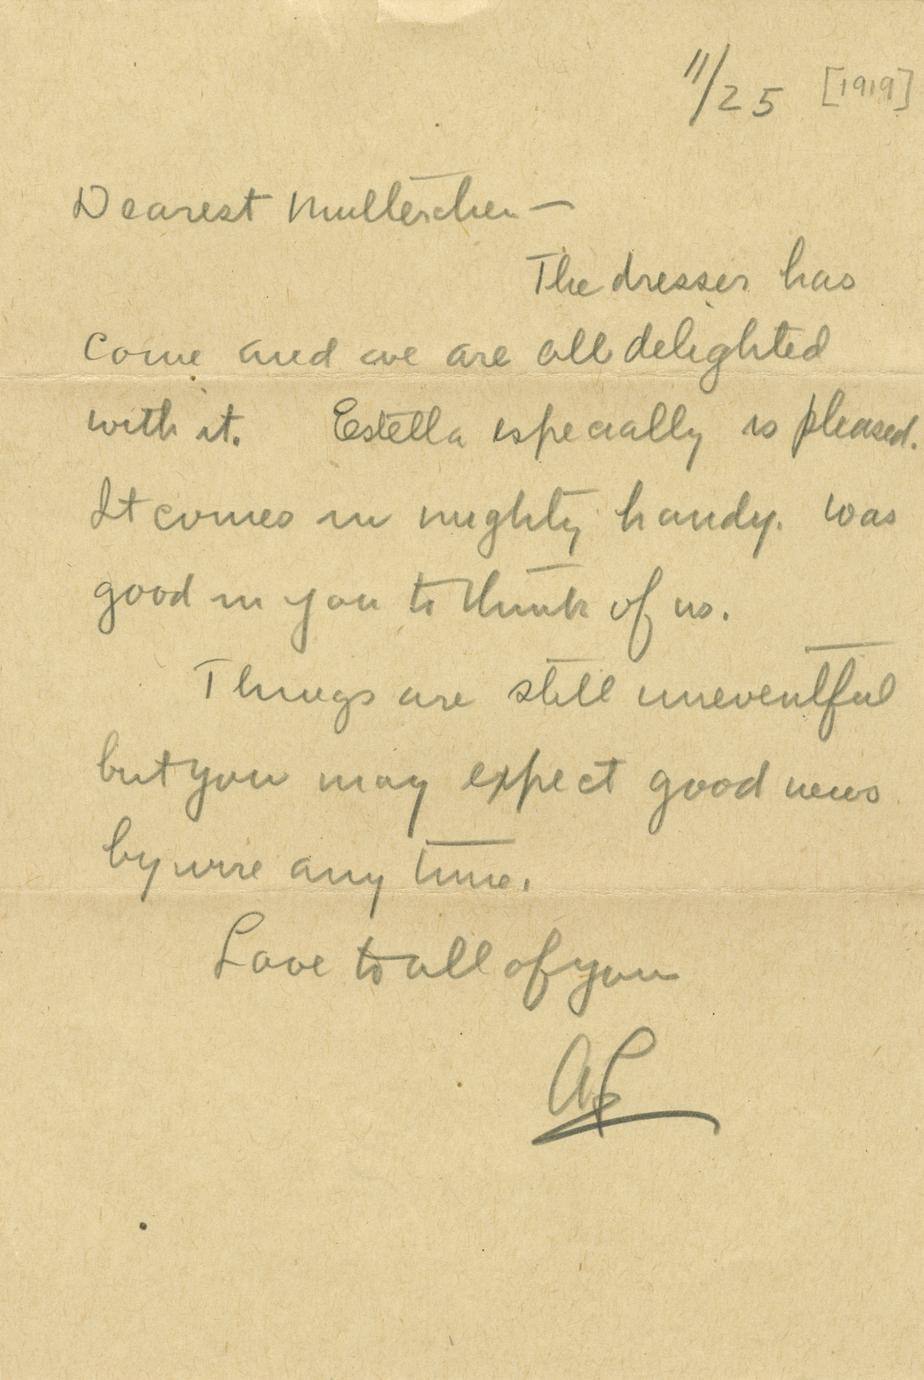 11/25 [1919]
Dearest Mutterchen —
The dresser has
come and we are all delighted
with it. Estella especially is pleased.
It comes in mighty handy. Was
good in you to think of us.
Things are still uneventful
but you may expect good news
by wire any time.
Love to all of you
AL